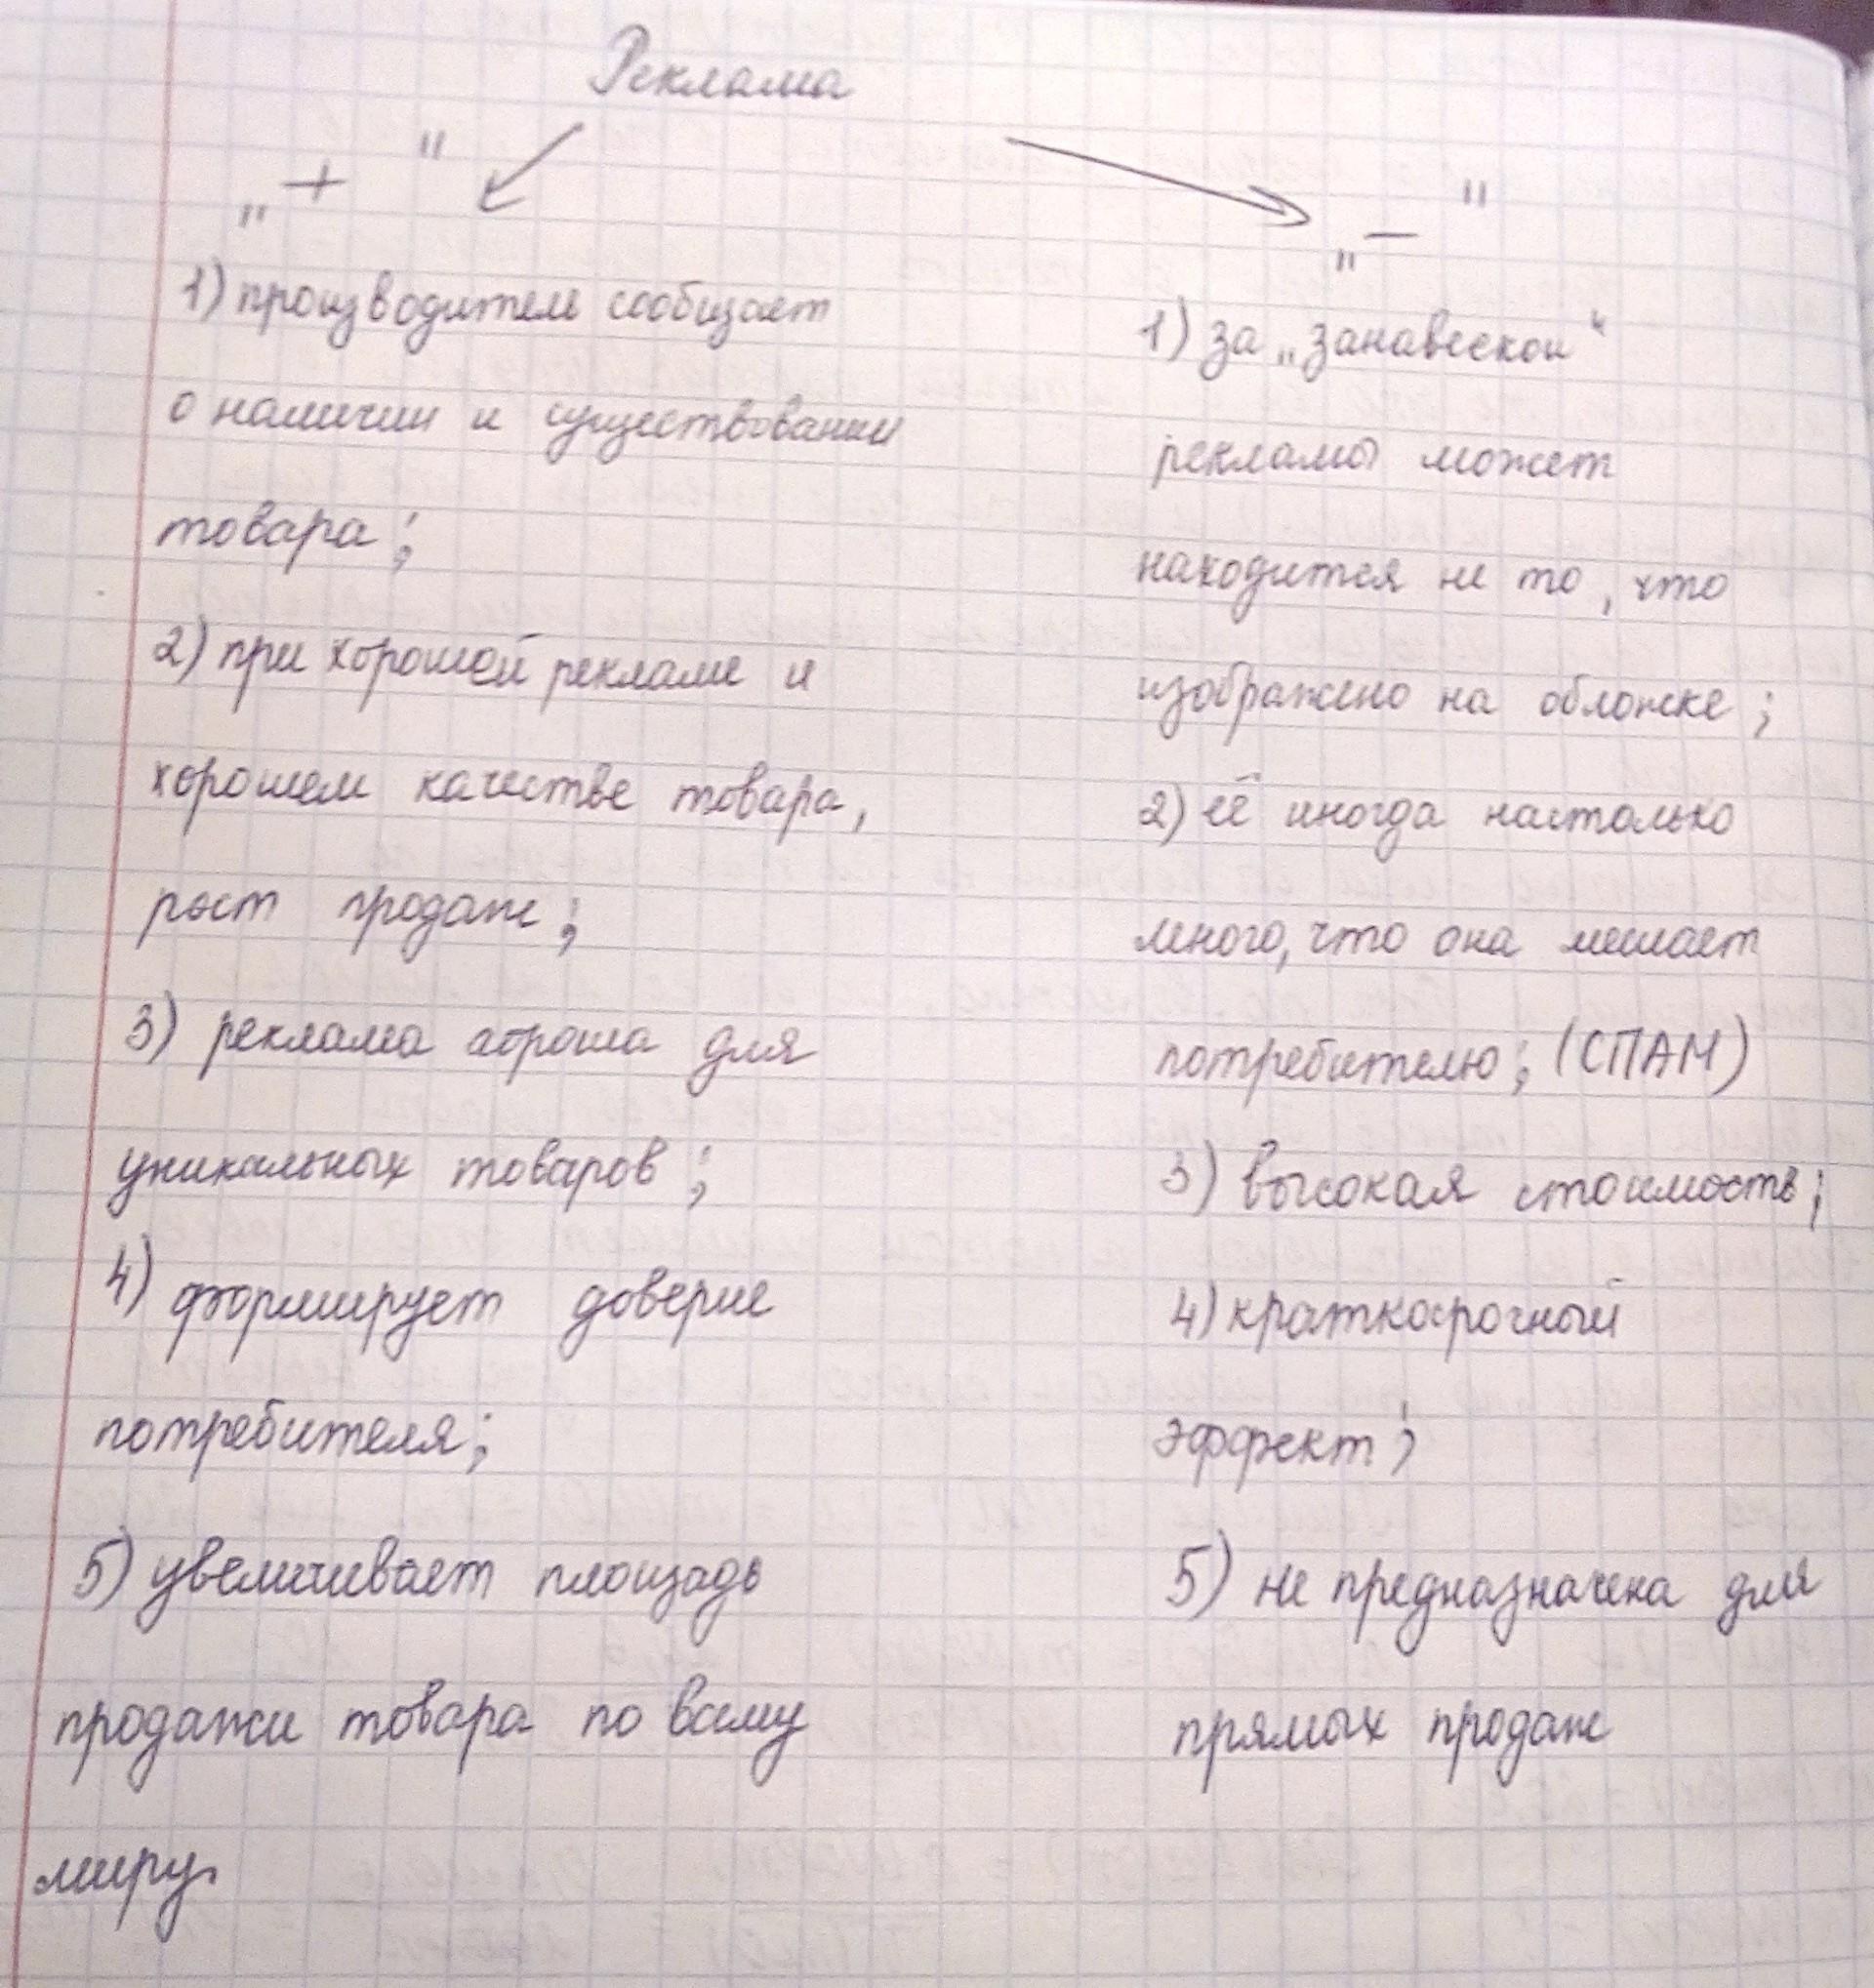 Реклама
„ + "
1) производителе сообщает
о наличии и существовании
товара;
2) при хорошей рекламе и
хорошем качестве товара,
рост продаж;
3) реклама хороша для
уникальных товаров;
4) формирует доверие
потребителя;
5) увеличивает площадь
продажи товара по всему
миру.
„ — "
1) за „занавеской“
рекламы может
находится не то, что
изображено на обложке;
2) её иногда настолько
много, что она мешает
потребителю; (СПАМ)
3) высокая стоимость;
4) краткосрочный
эффект;
5) не предназначена для
прямых продаж